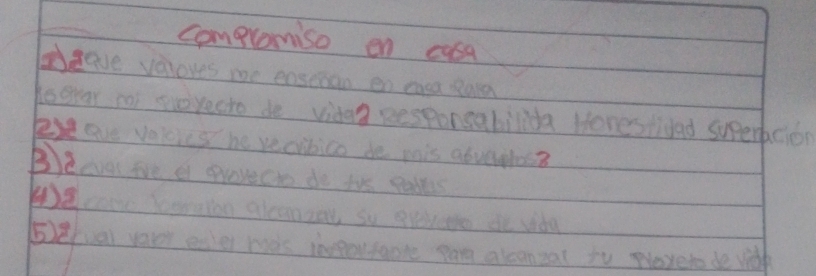 compromiso en casa
1)¿que valores me enseñan en casa para
lograr mi proyecto de vida? Responsabilida Honestidad superación
2)¿que valores he recibico de mis abuelos?
3)¿cual fue el proyecto de tus padres
4)¿como alcanzar su de vida
5)¿cual valor es el mas importante para alcanzar tu proyeto de vida